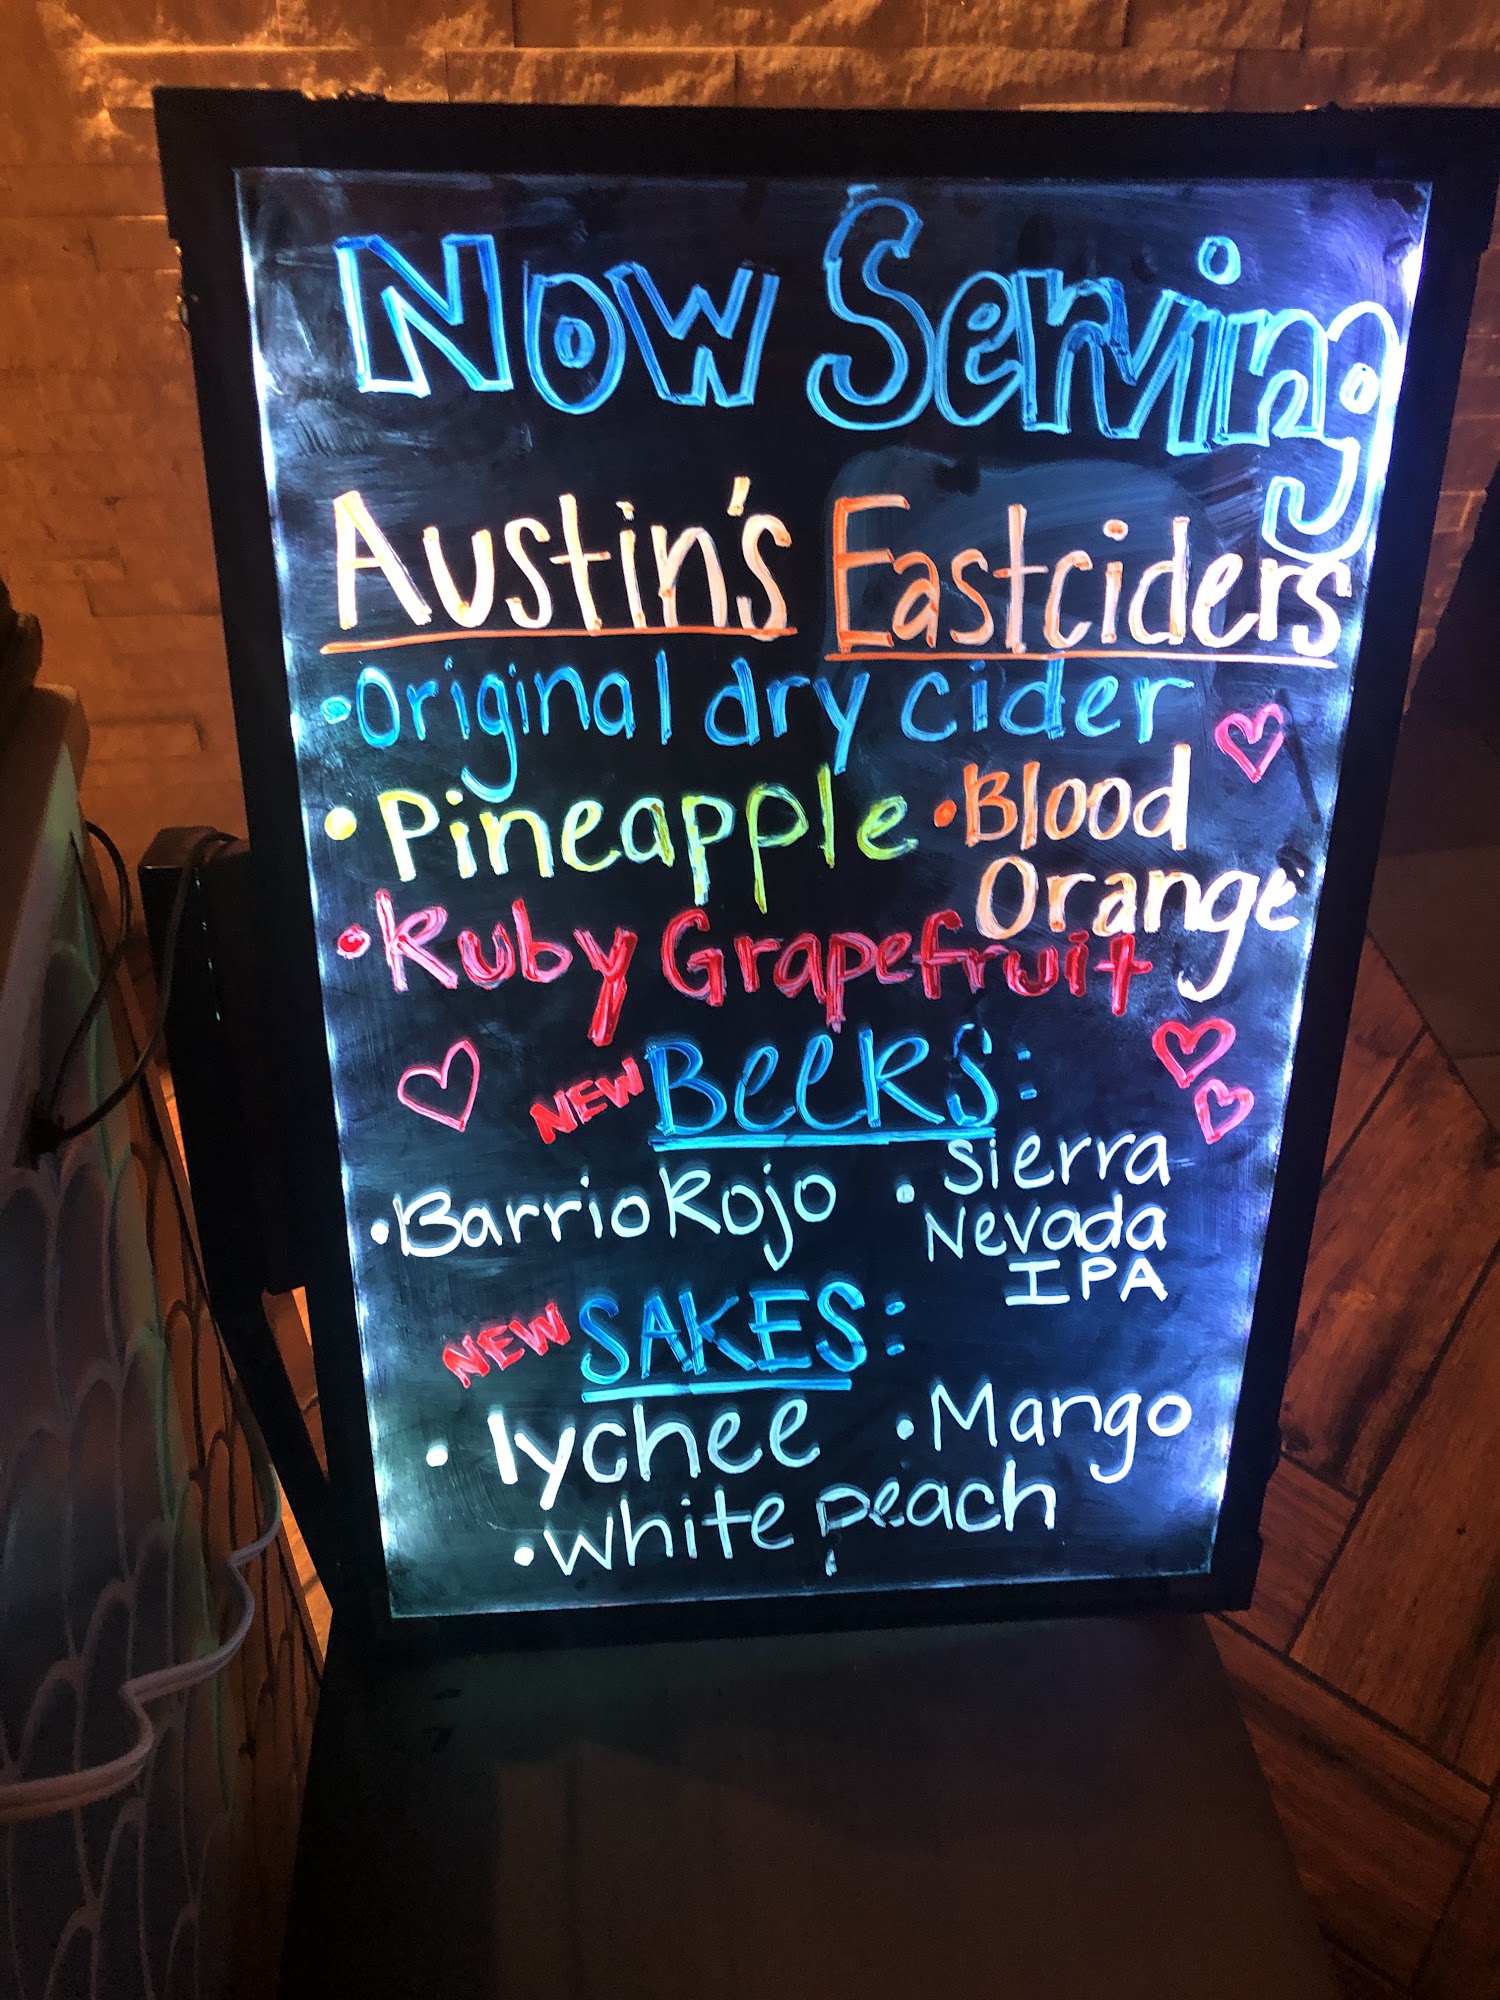 Now Serving
Austin's Eastciders
•Original dry cider
•Pineapple •Blood
Orange
•Ruby Grapefruit
NEW BEERS:
•Barrio Rojo •Sierra
Nevada
IPA
NEW SAKES:
•lychee •Mango
•white peach